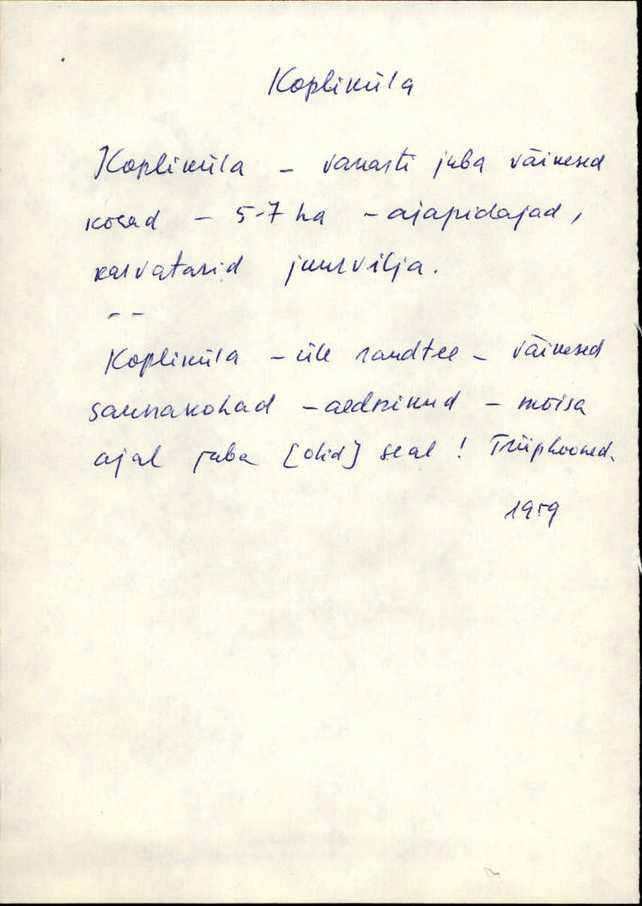 Kopliküla
Kopliküla – vanasti juba väikesed
kohad – 5-7 ha – ajapidajad,
kasvatasid juurvilja.
– –
Kopliküla – üle raudtee – väikesed
saunakohad – aednikud – mõisa
ajal juba [olid] seal! Tüüphooned.
1959